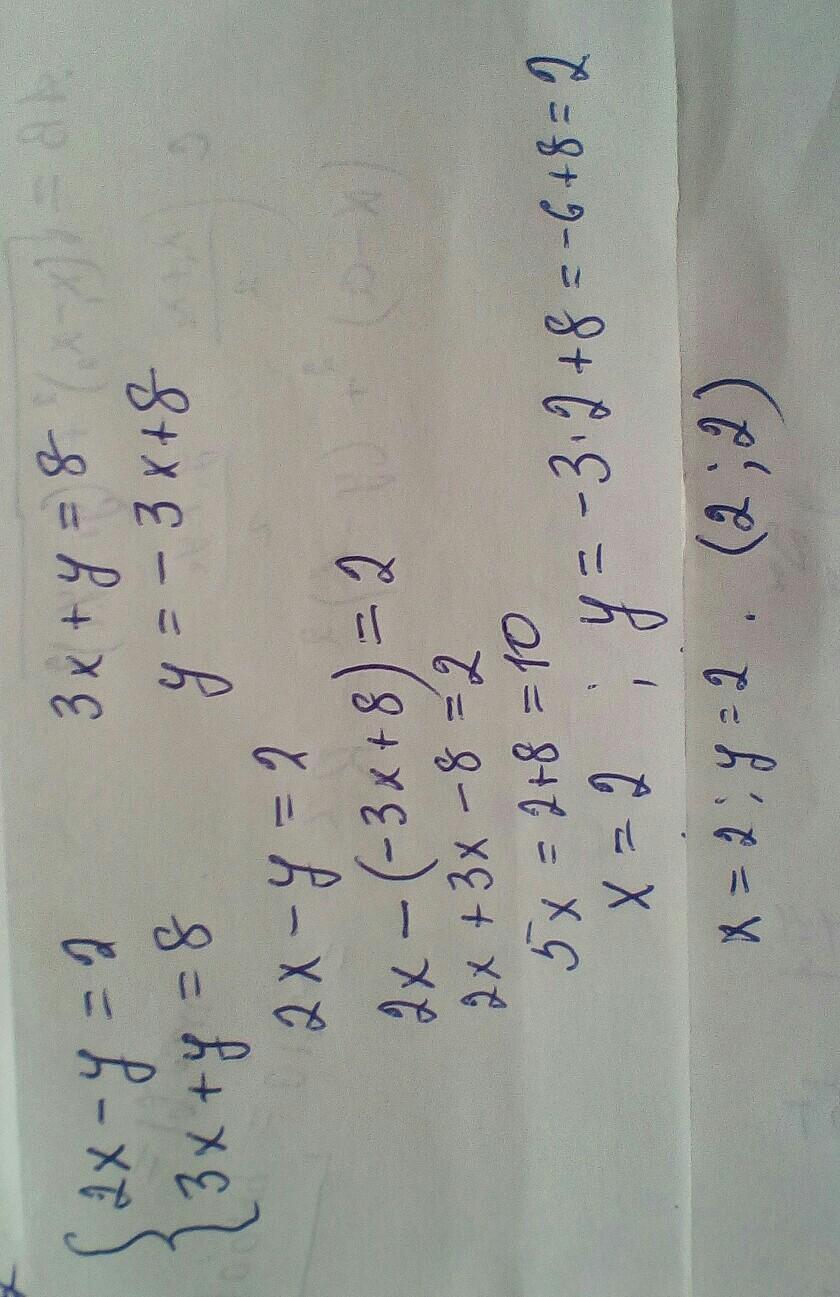 {2x - y = 2
3x + y = 8
3x + y = 8
y = - 3x+8
2x - y = 2
2x - (-3x+8) = 2
2x +3x -8 = 2
5x = 2+8 = 10
x = 2 ; y = -3·2+8 = -6+8 = 2
x = 2; y = 2 . (2;2)